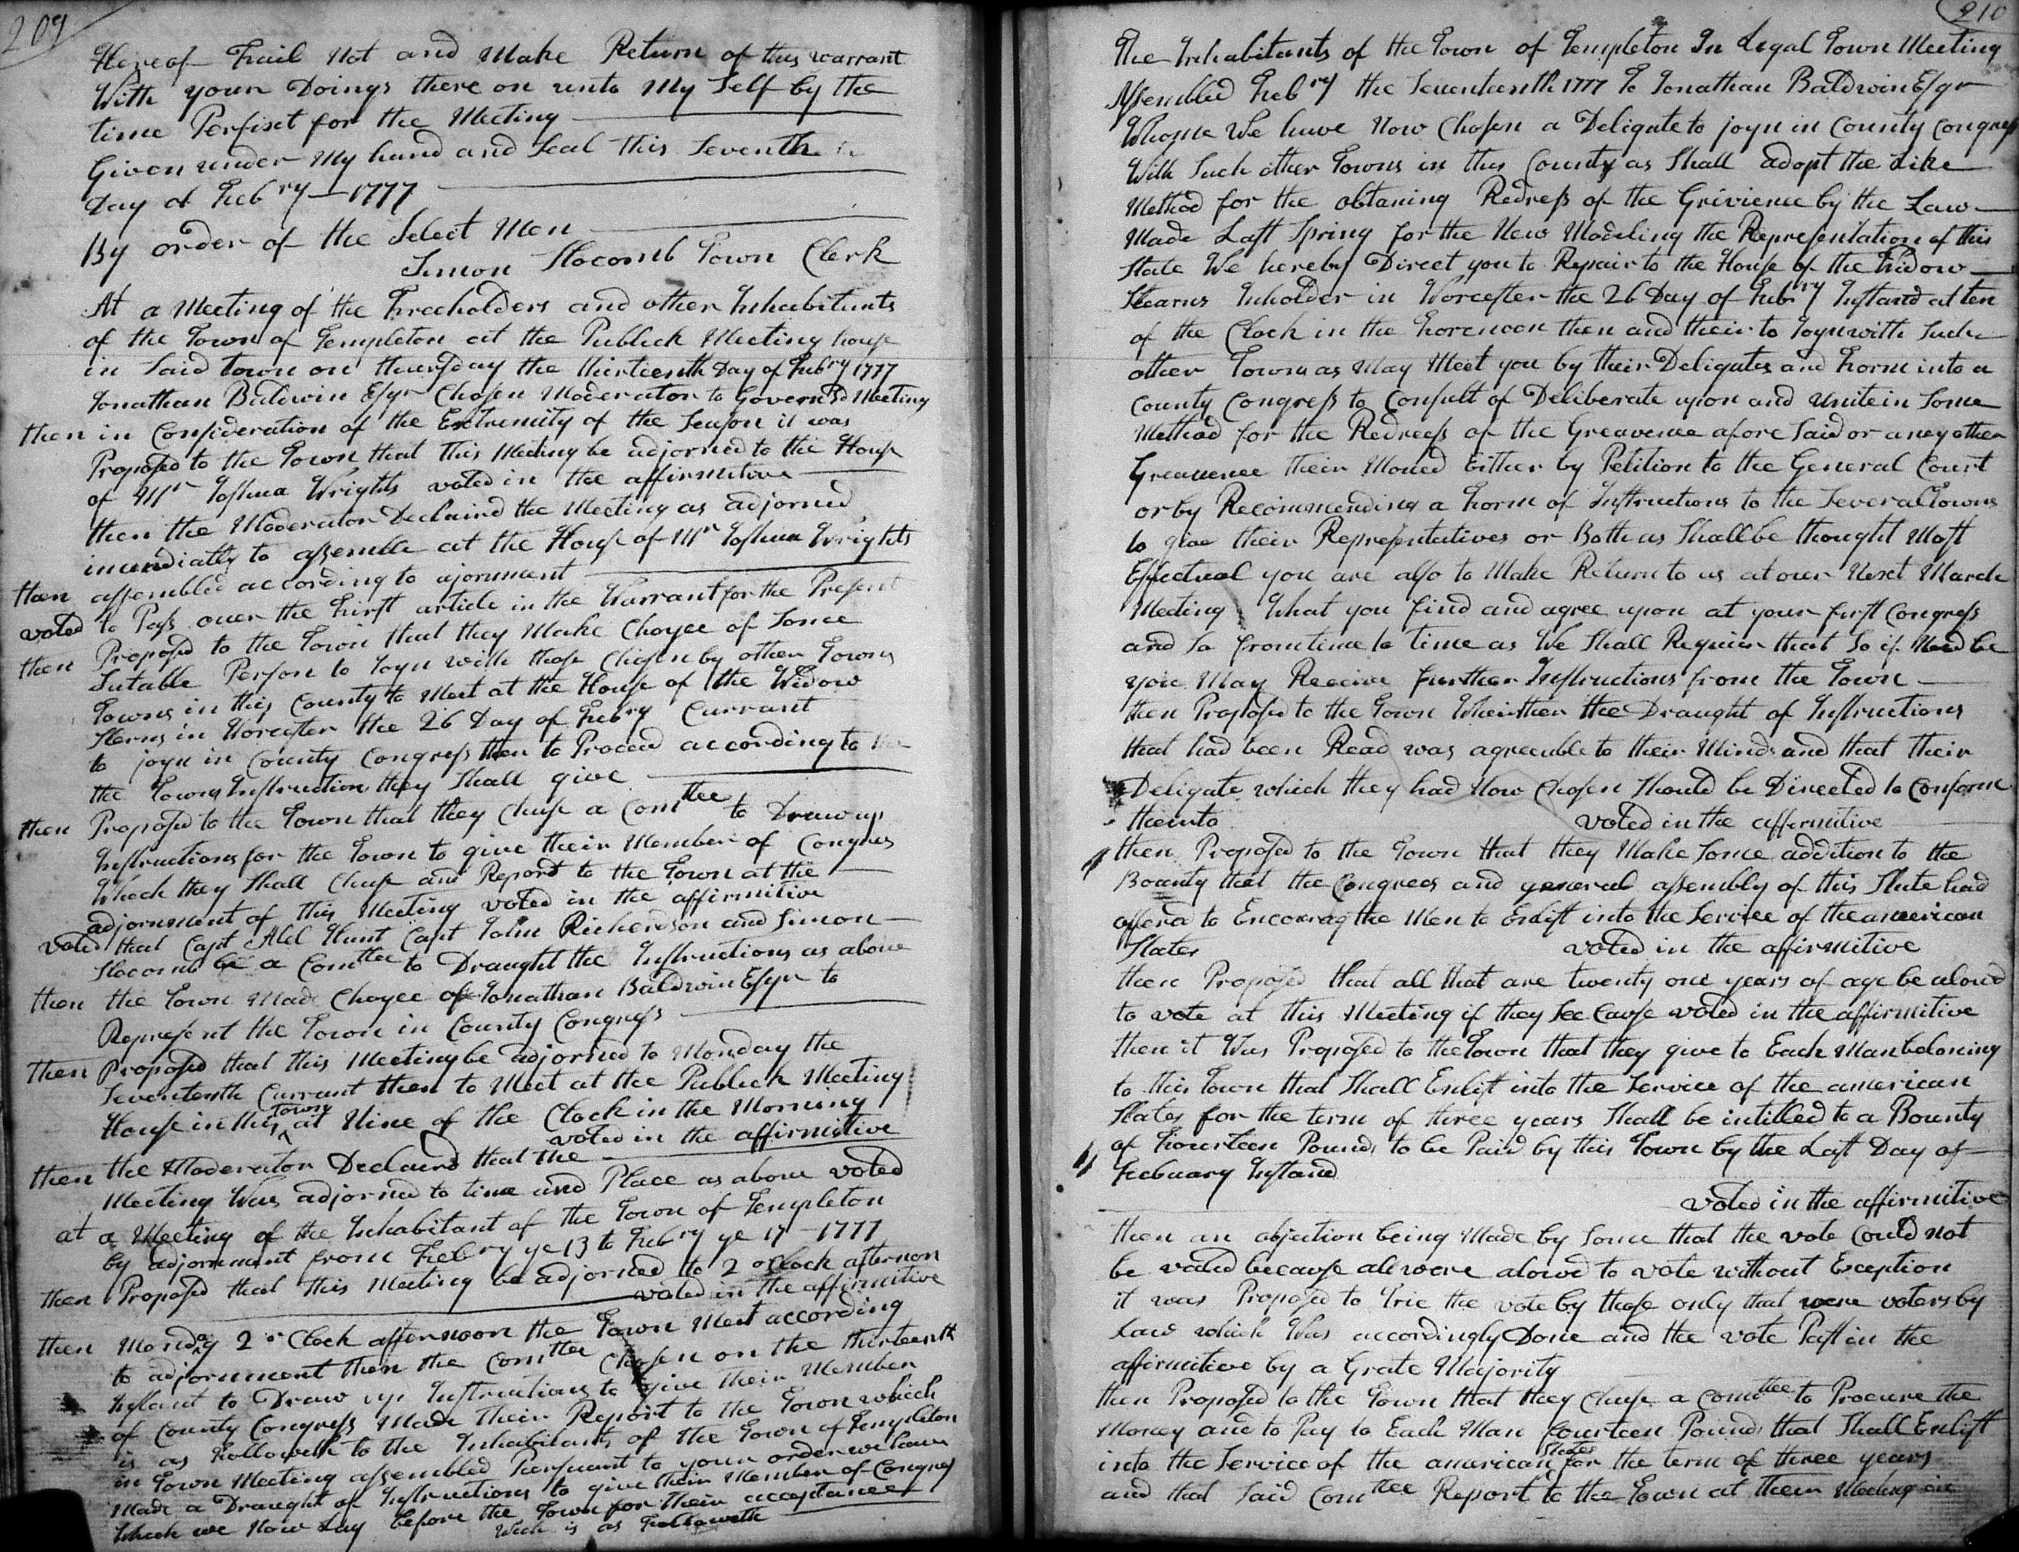 209
Hereof Fail Not and Make Return of this warrant
With your Doings there on unto My Self by the
time Perfixt for the Meeting
Given under My hand and Seal this Seventh
Day of Febry 1777
By order of the Select Men
Simon Slocomb Town Clerk
At a Meeting of the Freeholders and other Inhabitants
of the Town of Templeton at the Publick Meeting house
in Said town on thursday the thirteenth Day of Febry 1777
Jonathan Baldwin Esqr Chosen Moderator to Govern Sd Meeting
then in Consideration of the Extremity of the Season it was
Proposed to the Town that this Meeting be adjorned to the House
of Mr Joshua Wrights voted in the affirmitive
then the Moderator Declaird the Meeting as adjorned
immdiatly to assemble at the House of Mr Joshua Wrights
then assembled according to ajornment
voted to Pass over the First article in the Warrant for the Present
then Proposed to the Town that they Make Choyce of Some
Sutable Person to Joyn with those Chosen by other Towns
Towns in this County to Meet at the House of the Widow
Sterns in Worcester the 26 Day of Febry Currant
to joyn in County Congress then to Proceed according to the
the Towns Instruction they Shall give
then Proposed to the Town that they Chuse a Comttee to Draw up
Instructions for the Town to give their Member of Congres
Which they Shall Chuse and Report to the Town at the
adjornment of this Meeting voted in the affirmitive
Voted that Capt Abel Hunt Capt John Richerdson and Simon
Slocomb be a Comttee to Draught the Instructions as above
then the Town Made Choyce of Jonathan Baldwin Esqr to
Represent the Town in County Congress
then Proposed that this Meeting be adjorned to Monday the
Sevententh Currant then to Meet at the Publick Meeting
House in this town at Nine of the Clock in the Morning
voted in the affirmitive
then the Moderator Declaird that the
Meeting Was adjorned to time and Place as above voted
at a Meeting of the Inhabitant of the Town of Templeton
by adjornment from Febry ye 13 to Febry ye 17 1777
then Proposed that this Meeting be adjorned to 2 oClock afternon
voted in the affirmitive
then Monday 2 o Clock afternoon the Town Meet according
to adjornment then the Comttee Chosen on the thirteenth
Instant to Draw up Instructions to give their Member
of County Congress Made their Report to the Town which
is as Followeth to the Inhabitants of the Town of Templeton
in Town Meeting assembled Pursuant to your order we have
Made a Draught of Instructions to give their Member of Congres
Which we Now Lay before the Town for their acceptance
Wich is as Followeth
210
The Inhabitants of the Town of Templeton In Legal Town Meeting
Assembled Febry the Seventeenth 1777 To Jonathan Baldwin Esqr
Whome We have Now Chosen a Deligate to joyn in County Congress
With Such other Towns in this County as Shall adopt the Like
Method for the obtaning Redress of the Grivience by the Law
Made Last Spring for the New Modeling the Representation of this
State We hereby Direct you to Repair to the House of the Widow
Stearns Inholder in Worcester the 26 Day of Febry Instand at ten
of the Clock in the Forenoon then and their to Joyn with Such
other Towns as May Meet you by their Deligates and Form into a
County Congress to Consult of Deliberate upon and unite in Some
Method for the Redress of the Greavence afore Said or aney other
Greavence their Moved Either by Petition to the General Court
or by Recommending a Form of Instructions to the Several Towns
to give their Representatives or Both as Shall be thought Most
Effectual you are also to Make Return to us at our Next March
Meeting What you find and agree upon at your furst Congress
and So from time to time as We Shall Requier that So if Need be
you May Receive further Instructions from the Town
then Proposed to the Town Wheither the Draught of Instructions
that had been Read was agreeable to their Minds and that their
Deligate which they had Now Chosen Should be Directed to Conform
theirto voted in the affirmitive
then Proposed to the Town that they Make Some addition to the
Bounty that the Congress and general assembly of this State had
offerd to Encourag the Men to Enlist into the Service of the american
States voted in the affirmitive
then Proposed that all that are twenty one years of age be alowd
to vote at this Meeting if they See Cause voted in the affirmitive
then it Was Proposed to the Town that they give to Each Man beloning
to this Town that Shall Enlist into the Service of the american
States for the term of three years Shall be intitled to a Bounty
of Fourteen Pounds to be Paid by this Town by the Last Day of
Febuary Instand
voted in the affirmitive
then an objection being Made by Some that the vote Could not
be valid because all were alowd to vote without Exception
it was Proposed to Trie the vote by those only that were voters by
Law which Was accordingly Done and the vote Past in the
affirmitive by a Grate Majority
then Proposed to the Town that they Chuse a Comttee to Procure the
Money and to Pay to Each Man fourteen Pounds that Shall Enlist
into the Service of the american States for the term of three years
and that Said Comttee Report to the Town at their Meeting in